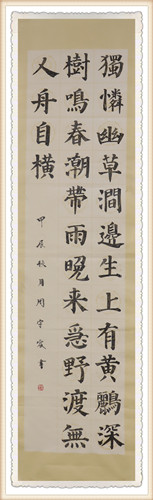 獨憐幽草澗邊生上有黃鸝深
樹鳴春潮帶雨晚来急野渡無
人舟自橫
甲辰秋月周書